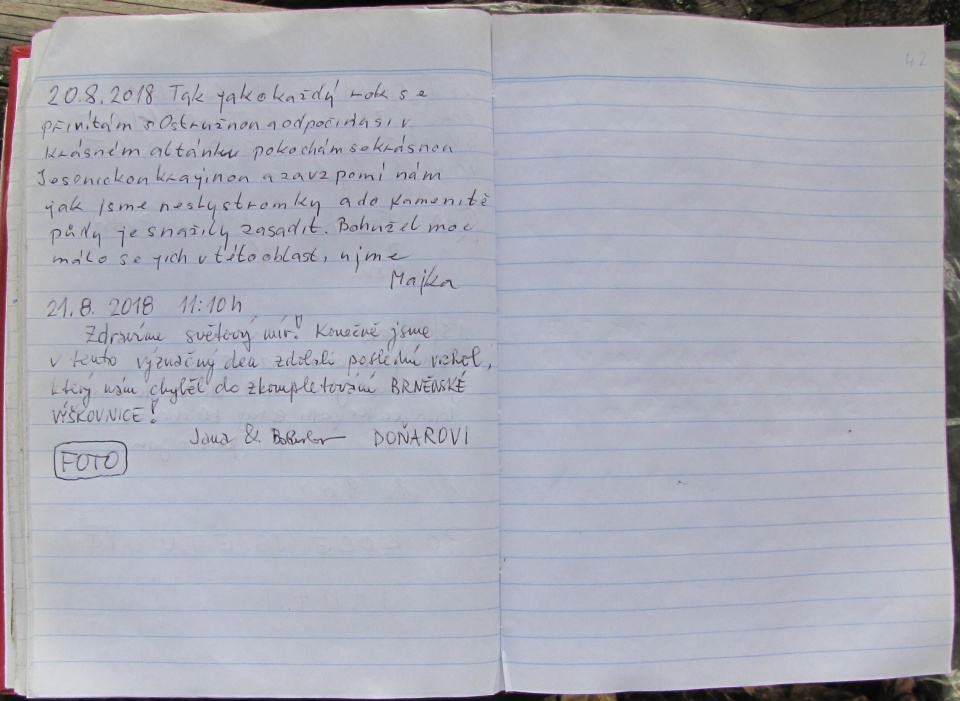 42
20.8.2018 Tak jako každý rok se
přivítám s Ostružnou a odpočinu si v
krásném altánku pokochám se krásnou
Jesenickou krajinou a zavzpomínám
jak jsme nesly stromky a do kamenité
půdy je snažily zasadit. Bohužel moc
málo se jich v této oblasti ujme
Majka
21.8.2018 11:10h
Zdravíme světový mír! Konečně jsme
v tento význačný den zdolali poslední vrchol,
který nám chyběl do zkompletování BRNĚNSKÉ
VÝŠKOVNICE!
Jana & Bohuslav DOŇAROVI
FOTO